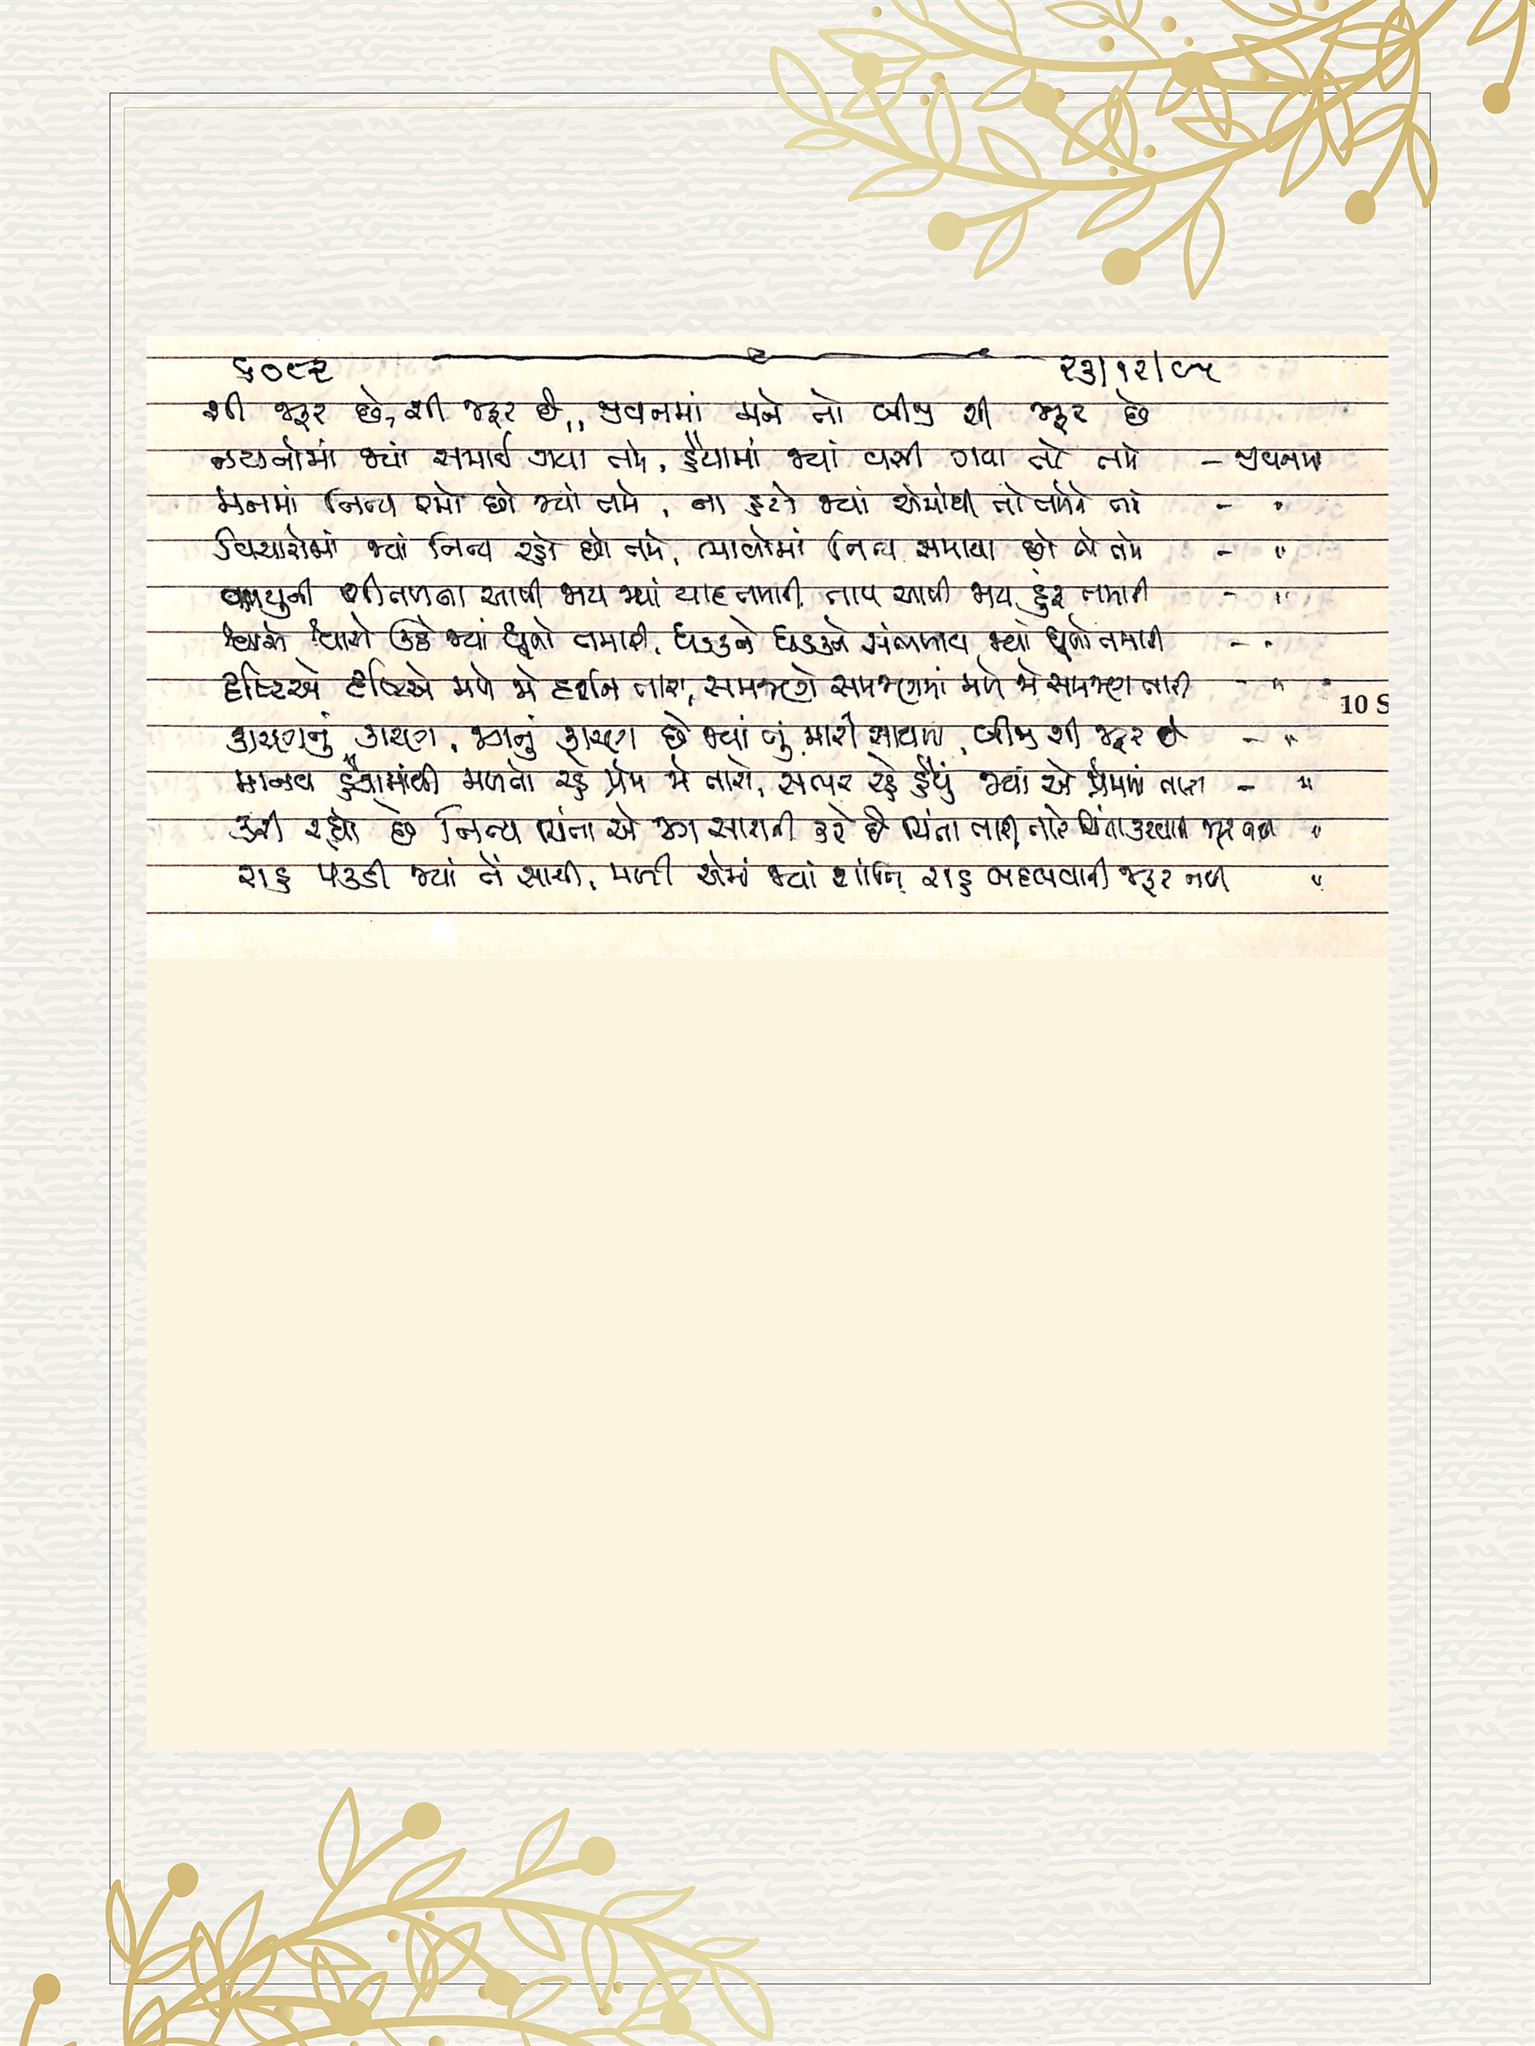 ૬૦૯૨ ૨૩/૧૨/૯૫
શી જરૂર છે, શી જરૂર છે,, જીવનમાં મને તો બીજી શી જરૂર છે
નયનોમાં જ્યાં સમાઈ ગયા તમે, હૈયામાં જ્યાં વસી ગયા તો તમે - જીવનમાં
મનમાં નિત્ય રમો છો જ્યાં તમે, ના હટો જ્યાં એમાંથી તો તમે - "
વિચારોમાં જ્યાં નિત્ય રહો છો તમે, ભાવોમાં નિત્ય સમાયા છો જે તમે - "
વાયુની શીતળતા આપી જાય જ્યાં યાદ તમારી, તાપ આપી જાય હુંફ તમારી - "
શ્વાસે શ્વાસે ઉઠે જ્યાં ધૂનો તમારી, ધડકને ધડકને સંભળાય જ્યાં ધૂનો તમારી - "
દૃષ્ટિએ દૃષ્ટિએ મળે જે દર્શન તારા, સમજણે સમજણમાં મળે જે સમજણ તારી - "
10 S
કારણનું કારણ, જગનું કારણ છે જ્યાં તું મારી સાથમાં, બીજી શી જરૂર છે - "
માનવ હૈયામાંથી મળતો રહે પ્રેમ જે તારો, તત્પર રહે હૈયું જ્યાં એ પ્રેમમાં તારા - "
કરી રહ્યો છે નિત્ય ચિંતા એ જગ સારાની કરે છે ચિંતા તારી તારે ચિંતા કરવાની જરૂર નથી "
રાહ પકડી જ્યાં તેં સાચી, મળી એમાં જ્યાં શાંતિ રાહ બદલવાની જરૂર નથી "